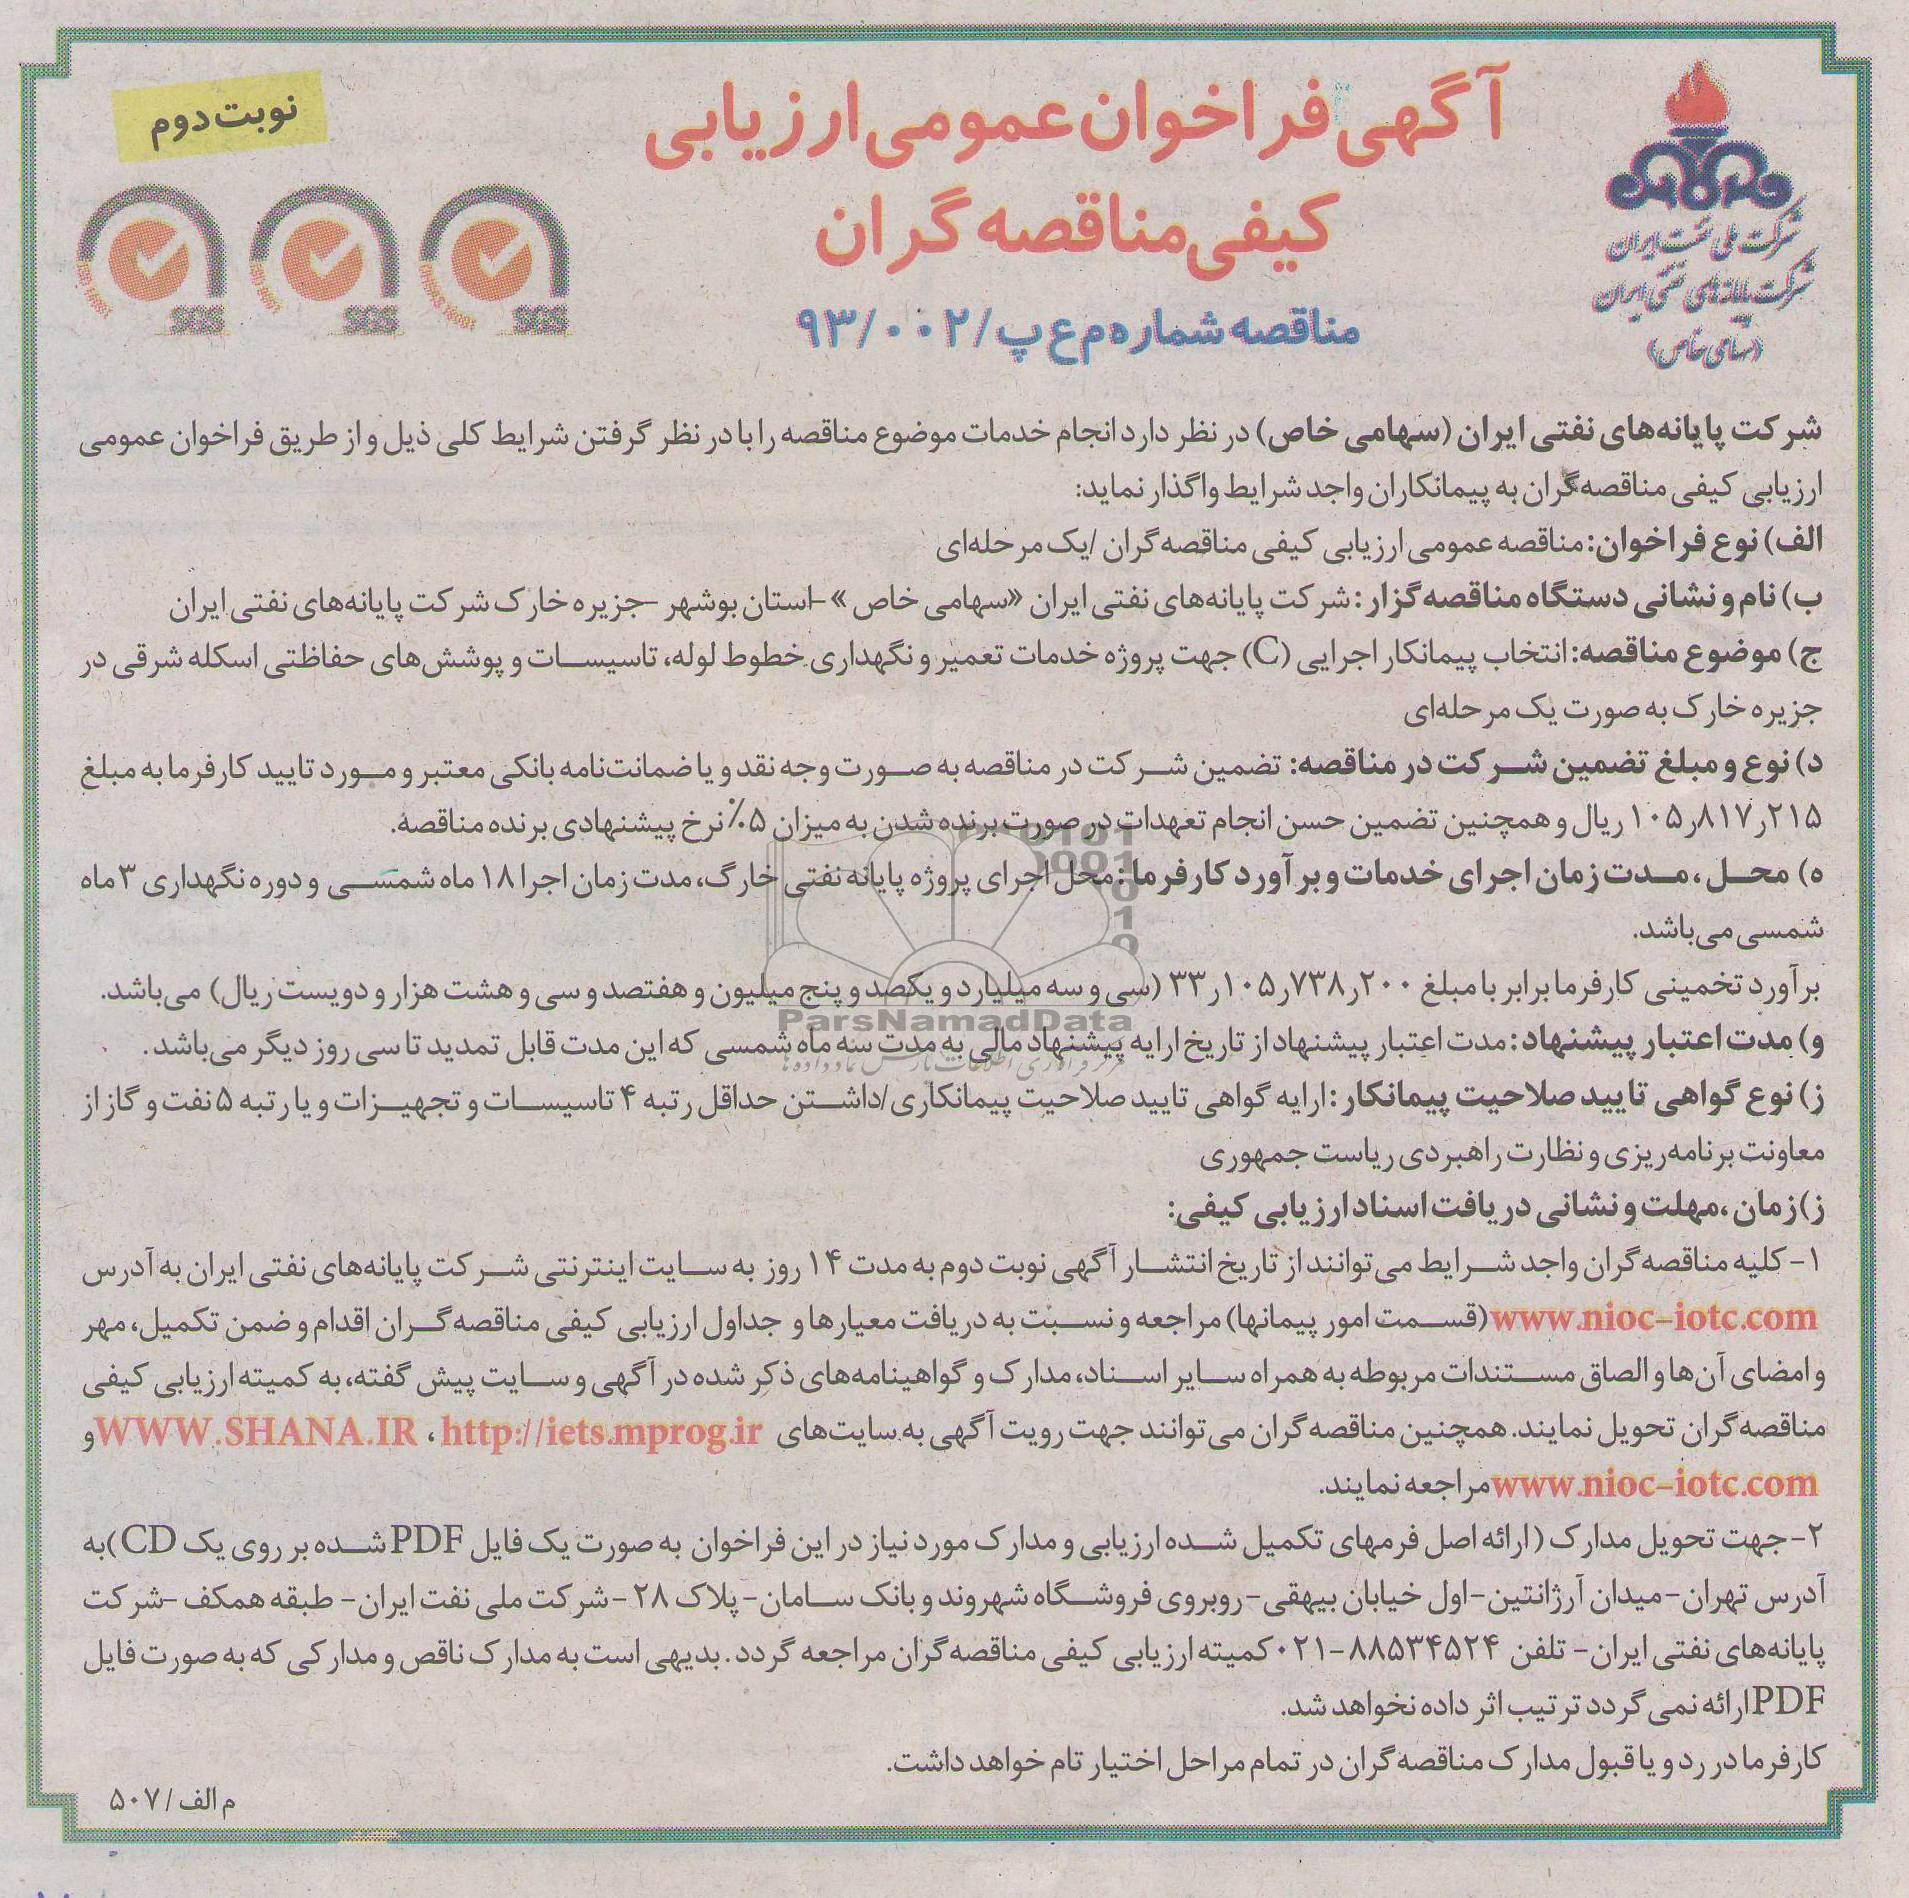 آگهی فراخوان عمومی ارزیابی
کیفی مناقصه گران
مناقصه شماره م ع پ / ۹۳/۰۰۲
نوبت دوم
شرکت ملی نفت ایران
شرکت پایانه های نفتی ایران
(سهامی خاص)
SGS
SGS
SGS
شرکت پایانه‌های نفتی ایران (سهامی خاص) در نظر دارد انجام خدمات موضوع مناقصه را با در نظر گرفتن شرایط کلی ذیل و از طریق فراخوان عمومی
ارزیابی کیفی مناقصه‌گران به پیمانکاران واجد شرایط واگذار نماید:
الف) نوع فراخوان: مناقصه عمومی ارزیابی کیفی مناقصه‌گران /یک مرحله‌ای
ب) نام و نشانی دستگاه مناقصه‌گزار: شرکت پایانه‌های نفتی ایران «سهامی خاص» -استان بوشهر -جزیره خارک شرکت پایانه‌های نفتی ایران
ج) موضوع مناقصه: انتخاب پیمانکار اجرایی (C) جهت پروژه خدمات تعمیر و نگهداری خطوط لوله، تاسیسات و پوشش‌های حفاظتی اسکله شرقی در
جزیره خارک به صورت یک مرحله‌ای
د) نوع و مبلغ تضمین شرکت در مناقصه: تضمین شرکت در مناقصه به صورت وجه نقد و یا ضمانت‌نامه بانکی معتبر و مورد تایید کارفرما به مبلغ
۲۱۵ر۸۱۷ر۱۰۵ ریال و همچنین تضمین حسن انجام تعهدات در صورت برنده شدن به میزان ۵٪ نرخ پیشنهادی برنده مناقصه.
ه) محل، مدت زمان اجرای خدمات و برآورد کارفرما: محل اجرای پروژه پایانه نفتی خارگ، مدت زمان اجرا ۱۸ ماه شمسی و دوره نگهداری ۳ ماه
شمسی می‌باشد.
برآورد تخمینی کارفرما برابر با مبلغ ۲۰۰ر۷۳۸ر۱۰۵ر۳۳ (سی و سه میلیارد و یکصد و پنج میلیون و هفتصد و سی و هشت هزار و دویست ریال) می‌باشد.
ParsNamadData
و) مدت اعتبار پیشنهاد: مدت اعتبار پیشنهاد از تاریخ ارایه پیشنهاد مالی به مدت سه ماه شمسی که این مدت قابل تمدید تا سی روز دیگر می‌باشد.
ز) نوع گواهی تایید صلاحیت پیمانکار: ارایه گواهی تایید صلاحیت پیمانکاری/داشتن حداقل رتبه ۴ تاسیسات و تجهیزات و یا رتبه ۵ نفت و گاز از
معاونت برنامه‌ریزی و نظارت راهبردی ریاست جمهوری
ز)زمان، مهلت و نشانی دریافت اسناد ارزیابی کیفی:
۱- کلیه مناقصه‌گران واجد شرایط می‌توانند از تاریخ انتشار آگهی نوبت دوم به مدت ۱۴ روز به سایت اینترنتی شرکت پایانه‌های نفتی ایران به آدرس
www.nioc-iotc.com (قسمت امور پیمانها) مراجعه و نسبت به دریافت معیارها و جداول ارزیابی کیفی مناقصه‌گران اقدام و ضمن تکمیل، مهر
و امضای آن‌ها و الصاق مستندات مربوطه به همراه سایر اسناد، مدارک و گواهینامه‌های ذکر شده در آگهی و سایت پیش گفته، به کمیته ارزیابی کیفی
مناقصه‌گران تحویل نمایند. همچنین مناقصه‌گران می‌توانند جهت رویت آگهی به سایت‌های http://iets.mprog.ir ، WWW.SHANA.IR و
www.nioc-iotc.com مراجعه نمایند.
۲- جهت تحویل مدارک (ارائه اصل فرمهای تکمیل شده ارزیابی و مدارک مورد نیاز در این فراخوان به صورت یک فایل PDF شده بر روی یک CD) به
آدرس تهران- میدان آرژانتین- اول خیابان بیهقی- روبروی فروشگاه شهروند و بانک سامان- پلاک ۲۸ - شرکت ملی نفت ایران- طبقه همکف -شرکت
پایانه‌های نفتی ایران- تلفن ۸۸۵۳۴۵۲۴-۰۲۱ کمیته ارزیابی کیفی مناقصه‌گران مراجعه گردد. بدیهی است به مدارک ناقص و مدارکی که به صورت فایل
PDF ارائه نمی گردد ترتیب اثر داده نخواهد شد.
کارفرما در رد و یا قبول مدارک مناقصه‌گران در تمام مراحل اختیار تام خواهد داشت.
م الف / ۵۰۷